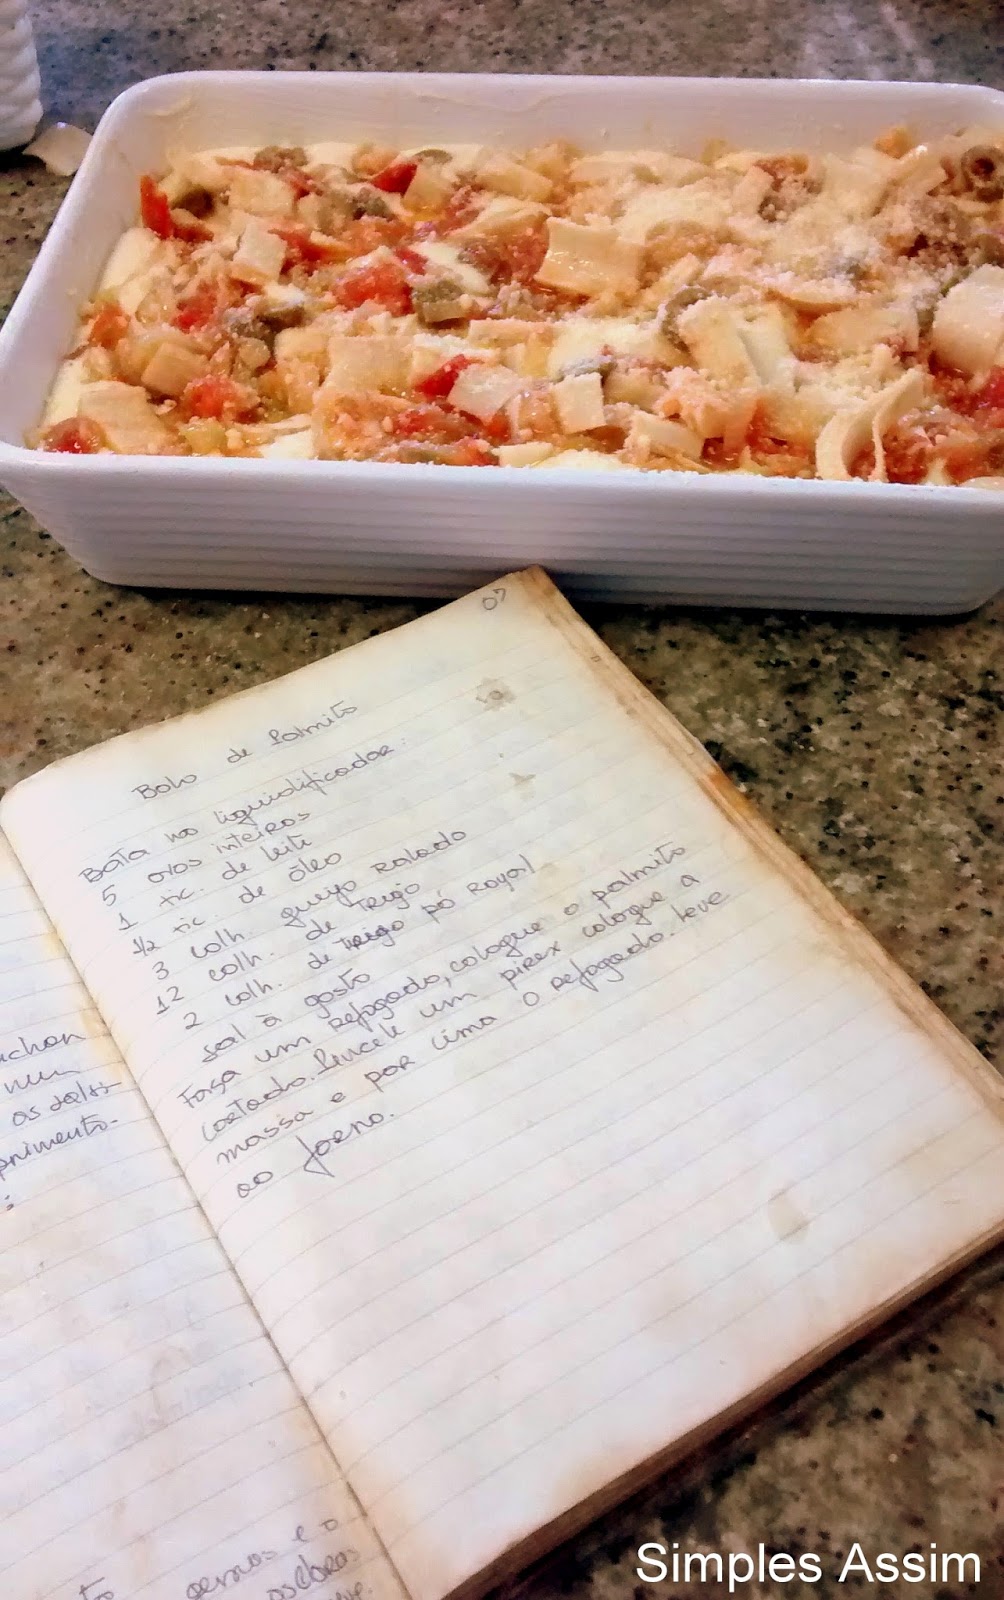 07
Bolo de Palmito
Bata no liquidificador:
5 ovos inteiros
1 xic. de leite
1/2 xic. de óleo
3 colh. queijo Ralado
12 colh. de Trigo
2 colh. de Trigo pó Royal
Sal à gosto
Faça um refogado, coloque o palmito
cortado. Pincele um pirex coloque a
massa e por cima o refogado. Leve
ao forno.
num
as
:
e o
Simples Assim